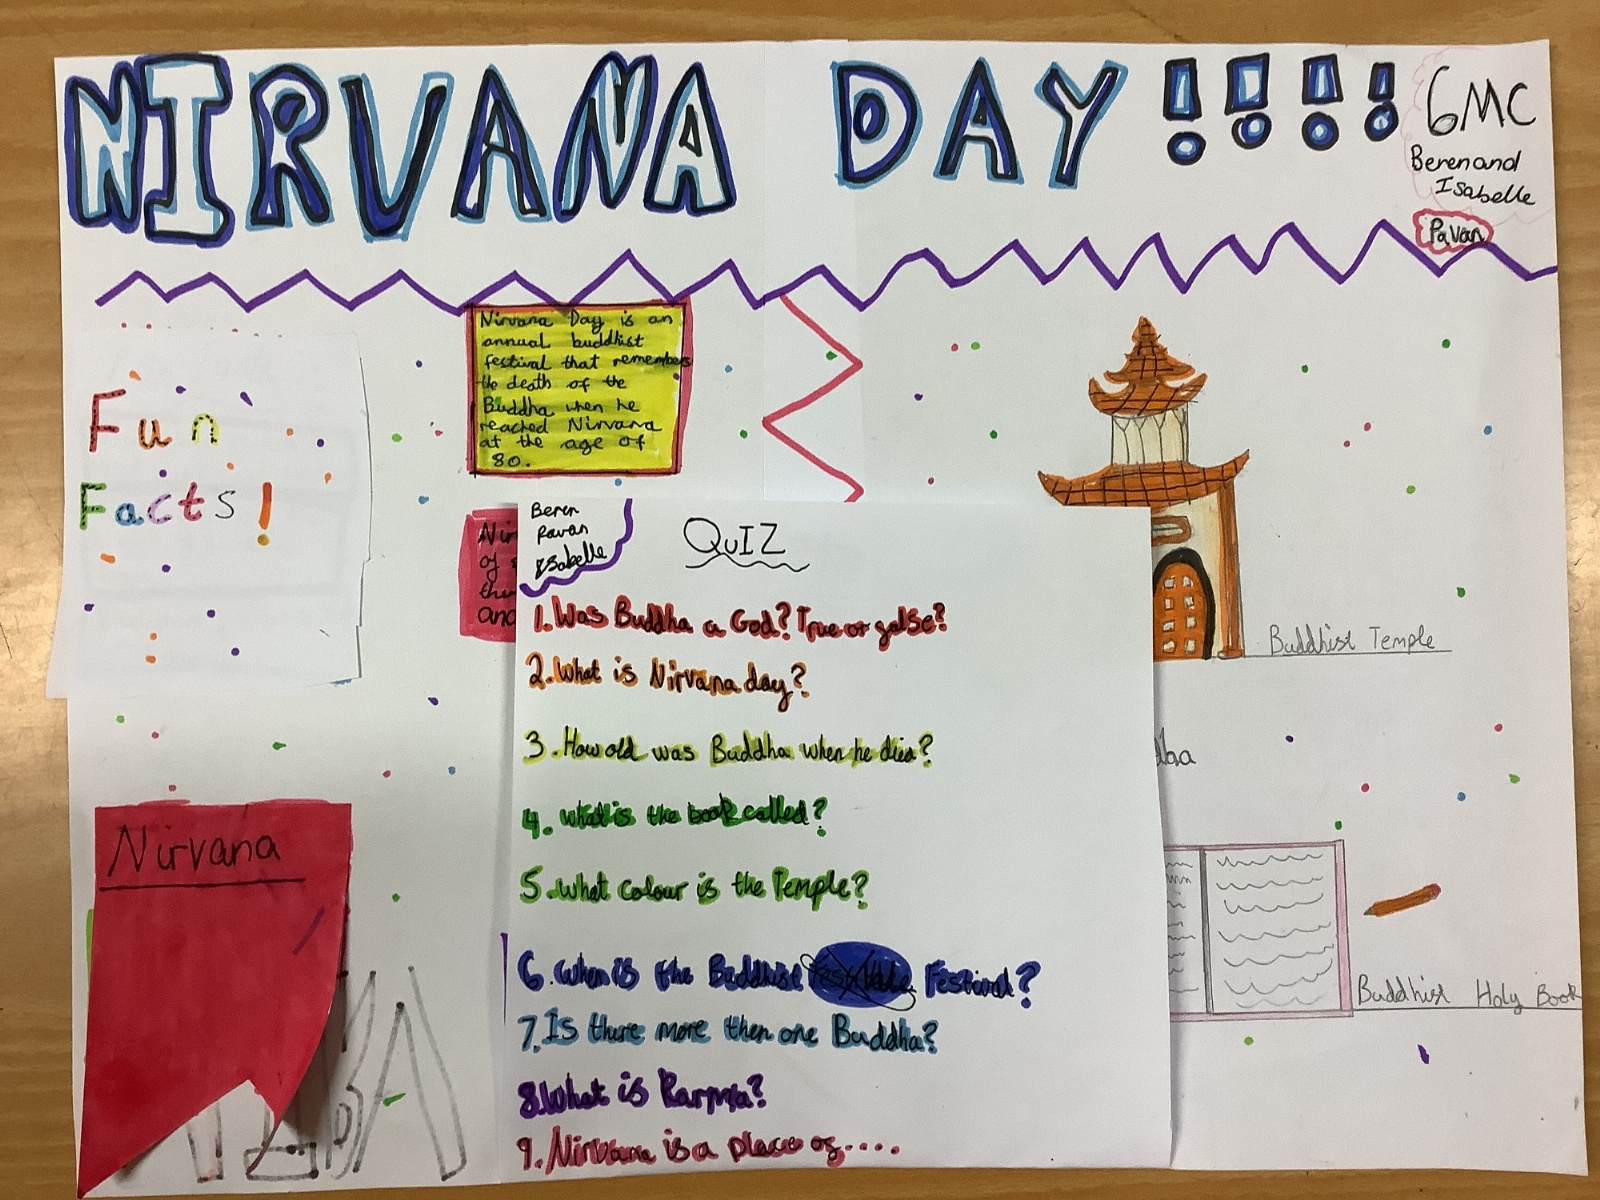 NIRVANA DAY!!!!
6MC
Beren and
Isabelle
Pavan
Fun
Facts!
Nirvana Day is an
annual buddhist
festival that remembers
the death of the
Buddha when he
reached Nirvana
at the age of
80.
Nir
of
the
and
Beren
Pavan
Isabelle
QuIZ
1. Was Buddha a God? True or false?
2. What is Nirvana day?
3. How old was Buddha when he died?
4. what is the book called?
5. What colour is the Temple?
6. When is the Buddhist Festival?
7. Is there more then one Buddha?
8. What is Karma?
9. Nirvana is a place of....
Buddhist Temple
dha
Nirvana
Buddhist Holy Book